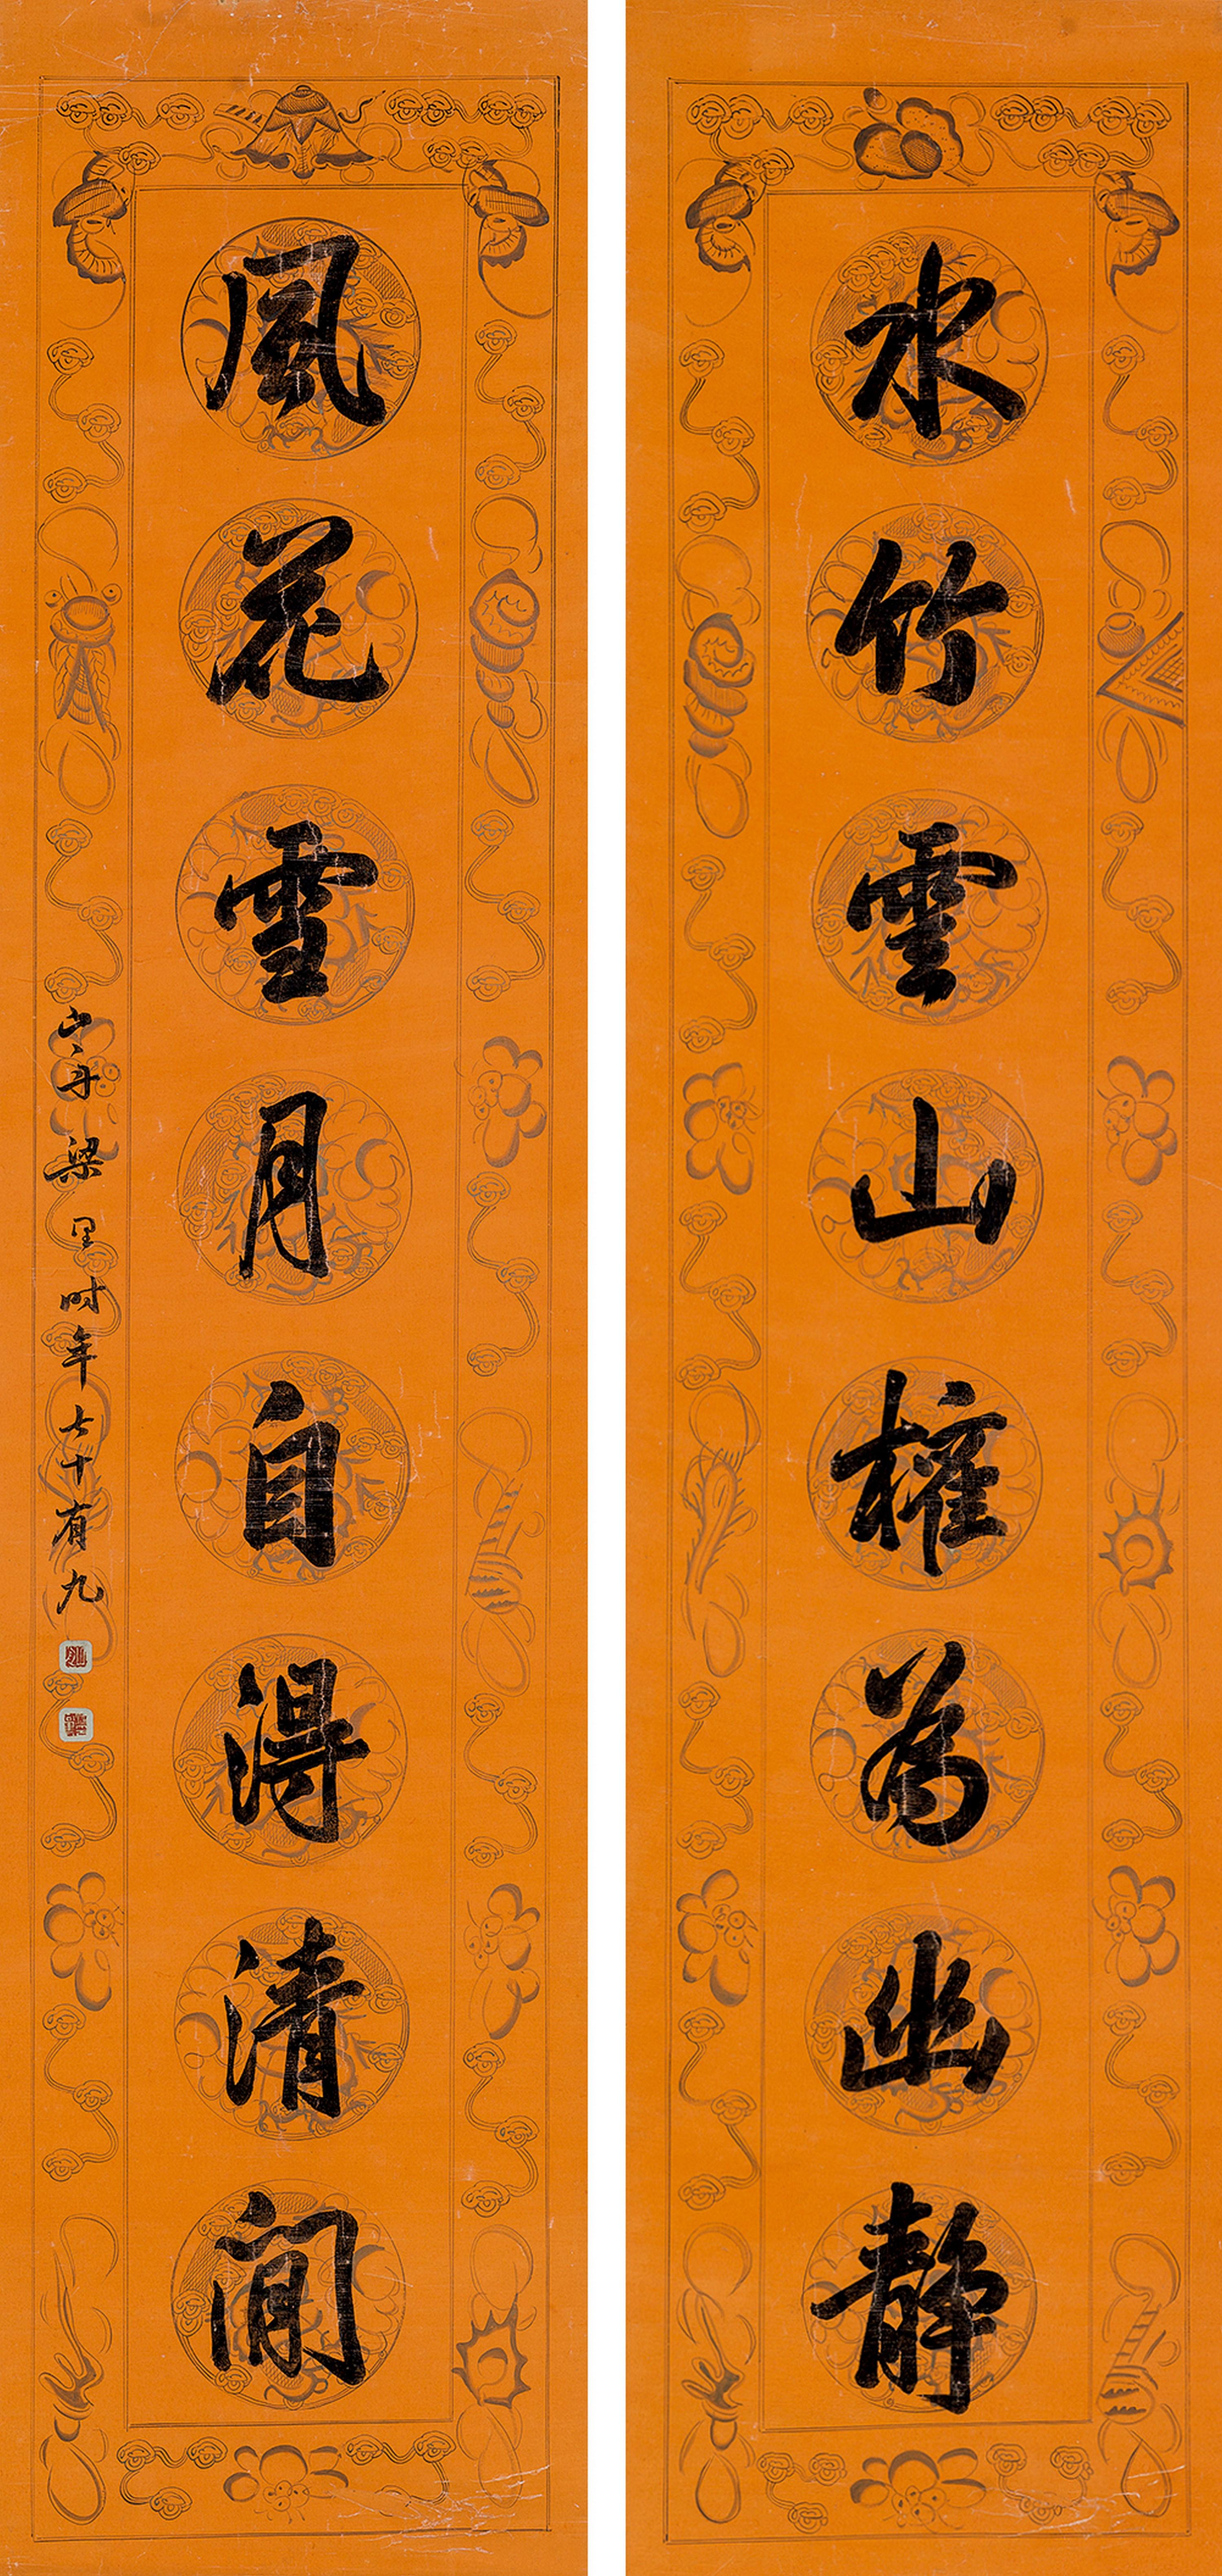 水竹雲山權為幽靜
風花雪月自得清閒
山舟梁同書時年七十有九